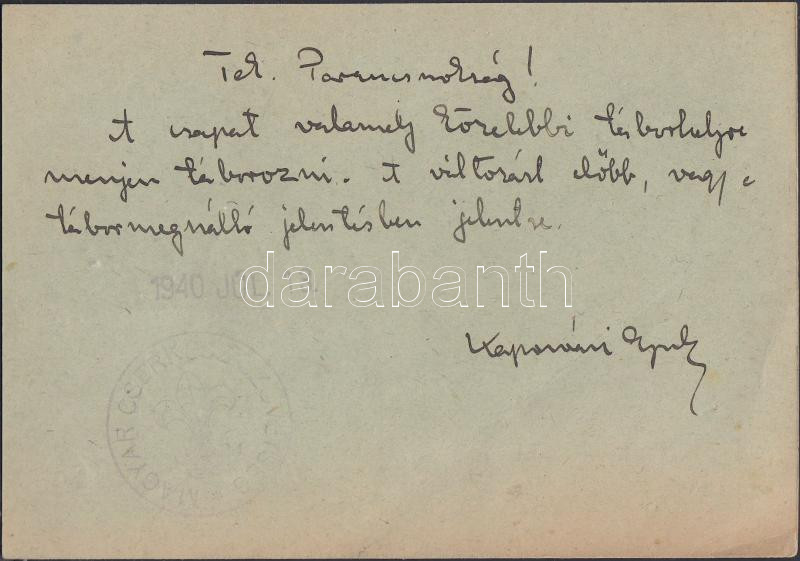 Tek. Parancsnokság!
A csapat valamely közelebbi táborhelyre
menjen táborozni. A változást előbb, vagy a
tábormegnálló jelentésben jelentse.
1940 JÚL
darabanth
Kaposvári Gyula
MAGYAR CSERK